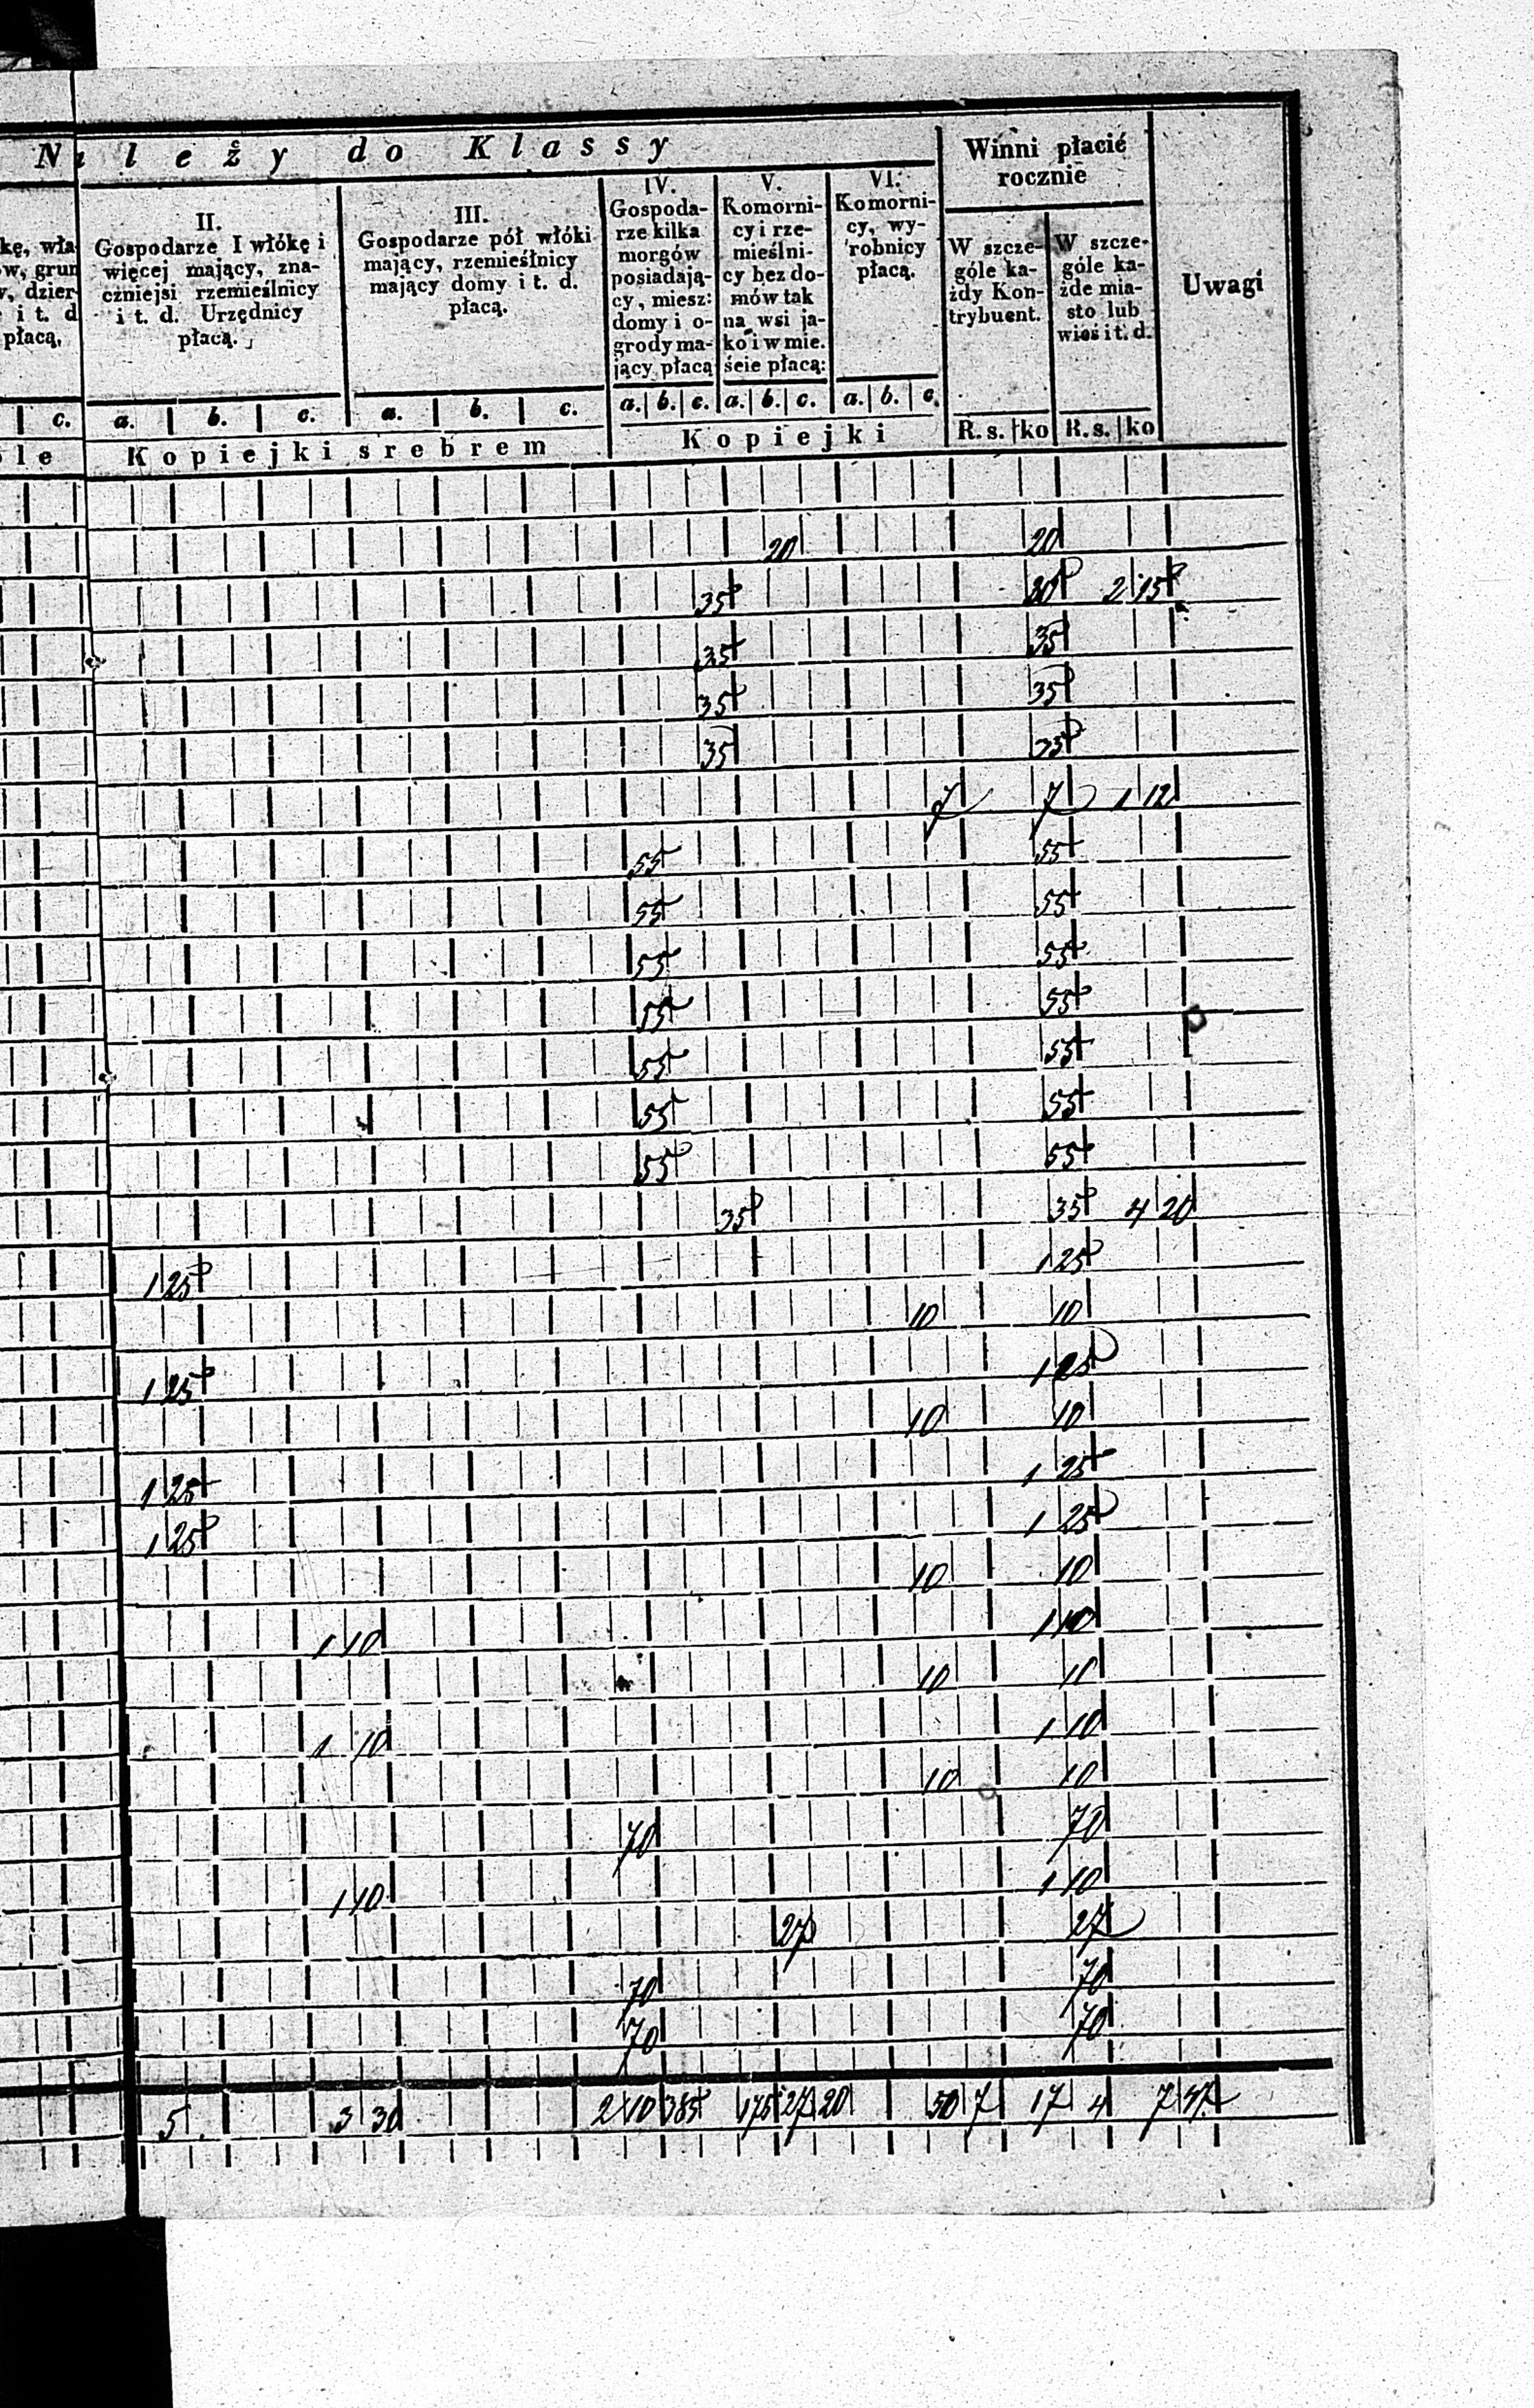 Należy do Klassy
Winni płacić
rocznie
Uwagi
kę, wła
w, grun
, dzier-
i t. d
płacą.
II.
Gospodarze I włókę i
więcej mający, zna-
czniejsi rzemieślnicy
i t. d. Urzędnicy
płacą.
III.
Gospodarze pół włóki
mający, rzemieślnicy
mający domy i t. d.
płacą.
IV.
Gospoda-
rze kilka
morgów
posiadają-
cy, miesz:
domy i o-
grody ma-
jący płacą
V.
Komorni-
cy i rze-
mieślni-
cy bez do-
mów tak
na wsi ja-
ko i w mie.
ście płacą:
VI.
Komorni-
cy, wy-
robnicy
płacą.
W szcze-
góle ka-
żdy Kon-
trybuent.
W szcze-
góle ka-
żde mia-
sto lub
wieś i t. d.
c. a. b. c. a. b. c. a. b. c. a. b. c. a. b. c.
le Kopiejki srebrem Kopiejki R. s. ko R. s. ko
20 20
35 20 2 15
35 35
35 35
35 35
7 7 1 12
55 55
55 55
55 55
55 55
55 55
55 55
55 55
35 35 4 20
1 25 1 25
10 10
1 25 1 25
10 10
1 25 1 25
1 25 1 25
10 10
1 10 1 10
10 10
1 10 1 10
10 10
70 70
1 10 1 10
27 27
70 70
70 70
5 3 30 2 10 385 175 27 20 50 7 17 4 7 47